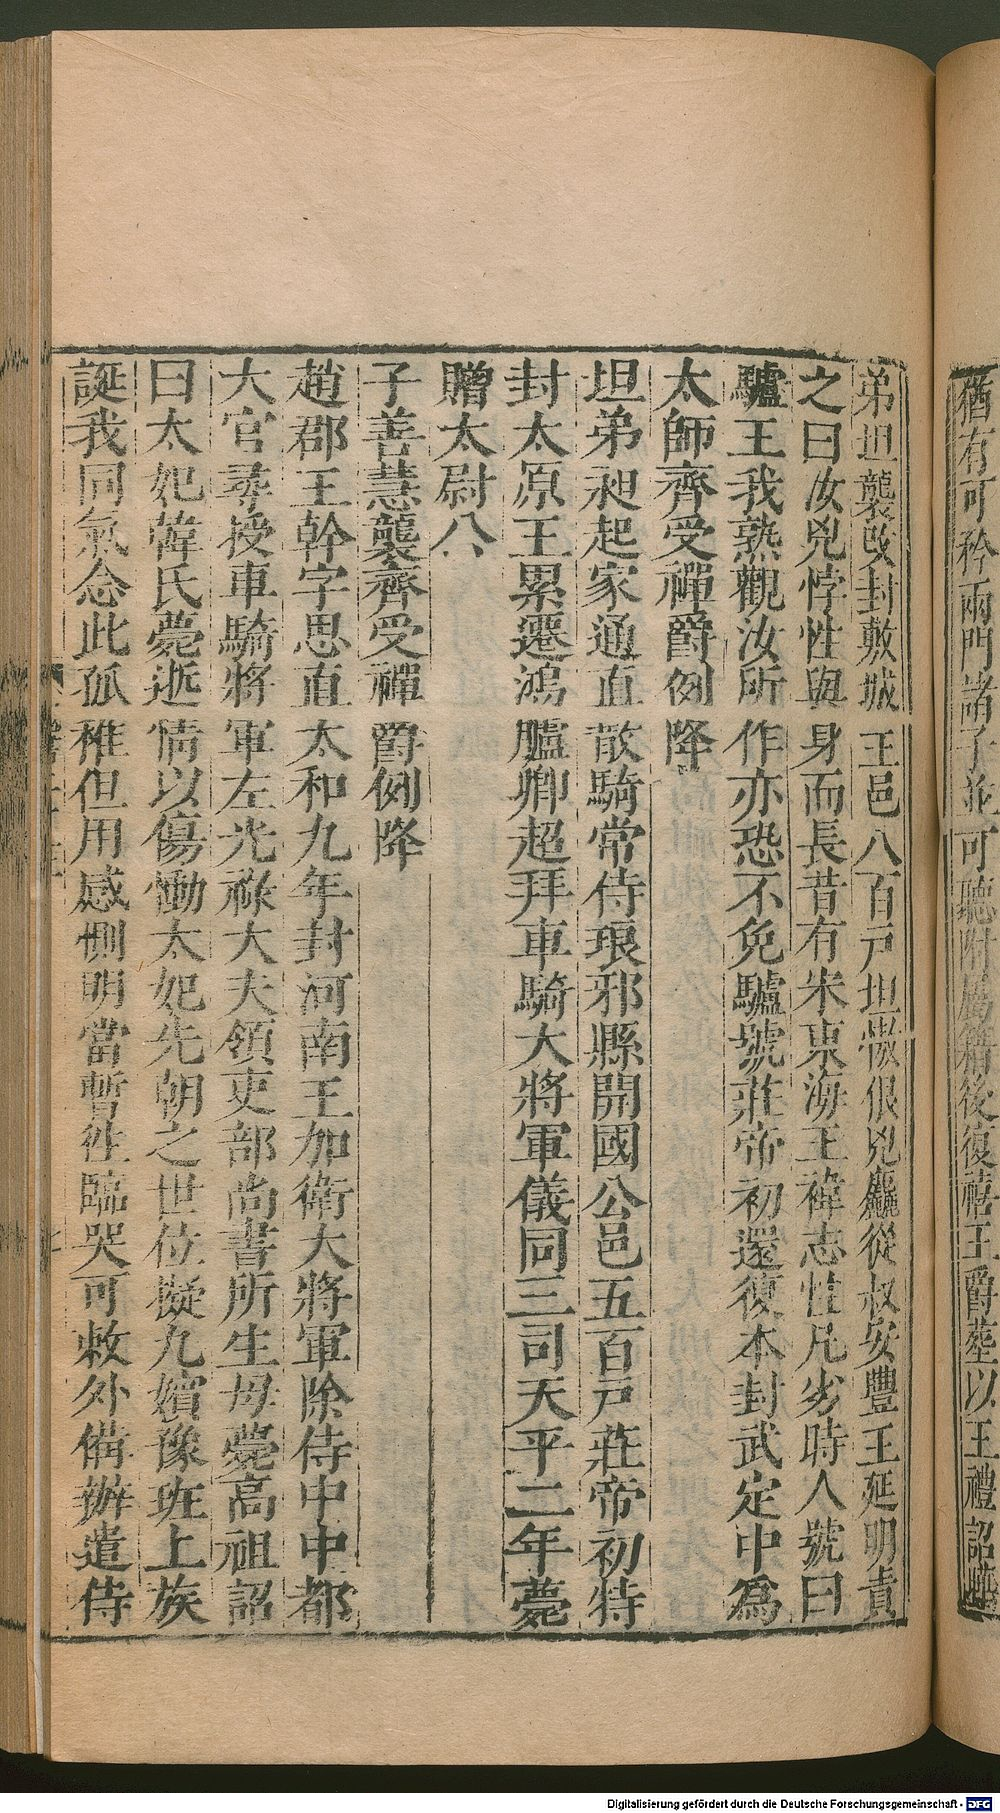 猶有可矜兩門諸子並可聽附屬籍後復禧王爵葬以王禮詔
弟坦襲改封敷城王邑八百戸坦慠佷兇麤從叔安豐王延明責
之曰汝兇悖性與身而長昔有宋東海王褘志性凡劣時人號曰
驢王我熟觀汝所作亦恐不免驢號莊帝初還復本封武定中為
太師齊受禪爵例降
坦弟昶起家通直散騎常侍琅邪縣開國公邑五百戸莊帝初特
封太原王累遷鴻臚卿超拜車騎大將軍儀同三司天平二年薨
贈太尉八
子善慧襲齊受禪爵例降
趙郡王幹字思直太和九年封河南王加衛大將軍除侍中中都
大官尋授車騎將軍左光祿大夫領吏部尚書所生母薨高祖詔
曰太妃韓氏薨逝情以傷慟太妃先朝之世位擬九嬪豫班上族
誕我同氣念此孤稚但用感惻明當暫往臨哭可敕外備辦遣侍
Digitalisierung gefördert durch die Deutsche Forschungsgemeinschaft - DFG